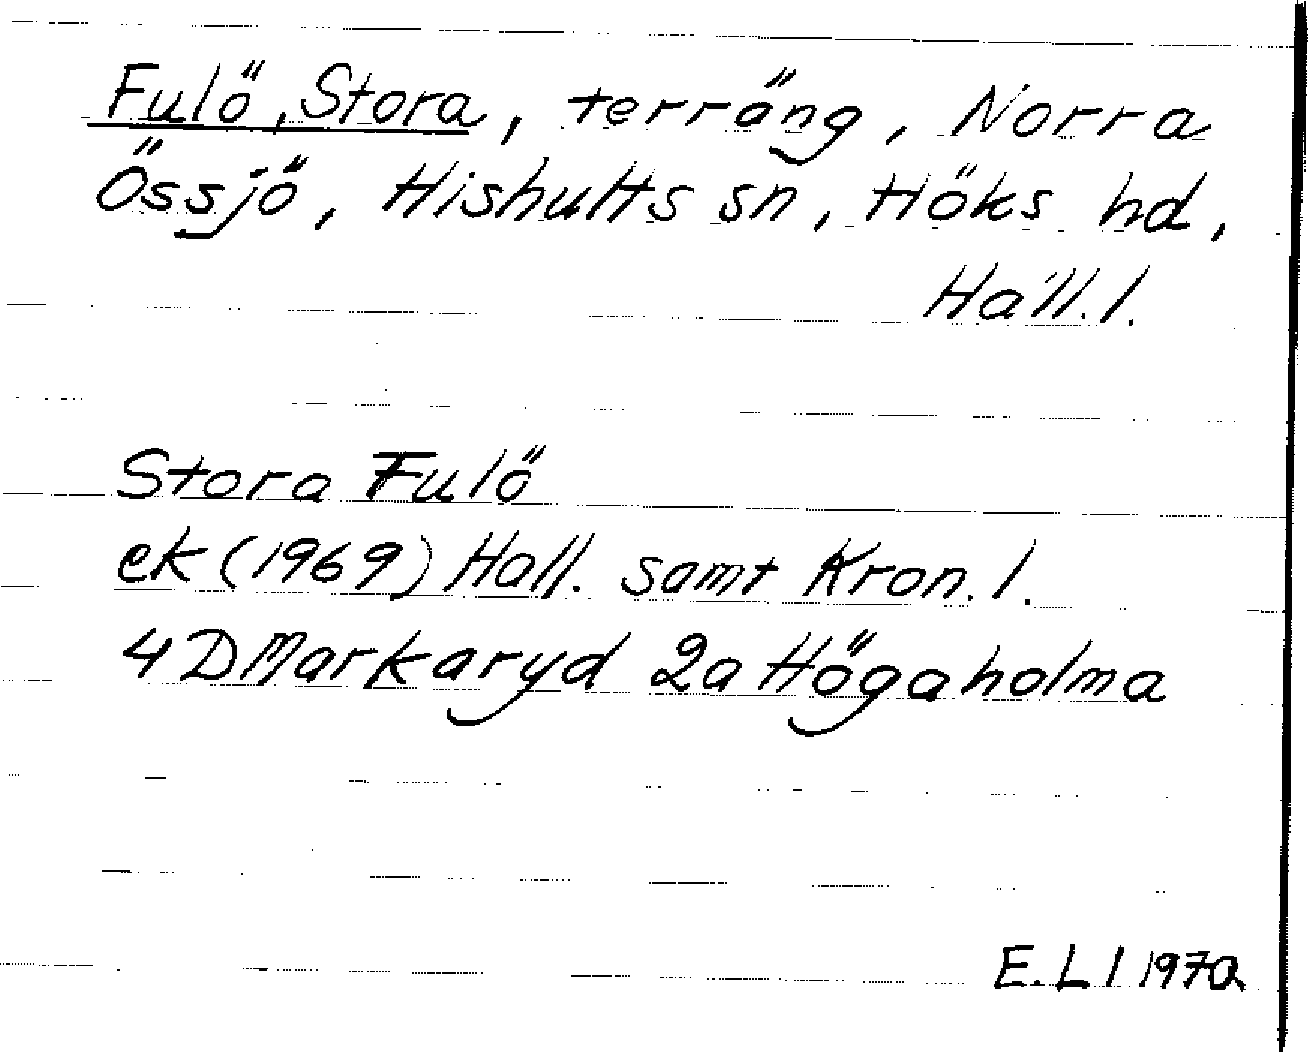 Fulö, Stora, terräng, Norra
Össjö, Hishults sn, Höks hd,
Hall. l.
Stora Fulö
ek (1969) Hall. samt Kron. l.
4D Markaryd 2a Högaholma
E. L l 1970